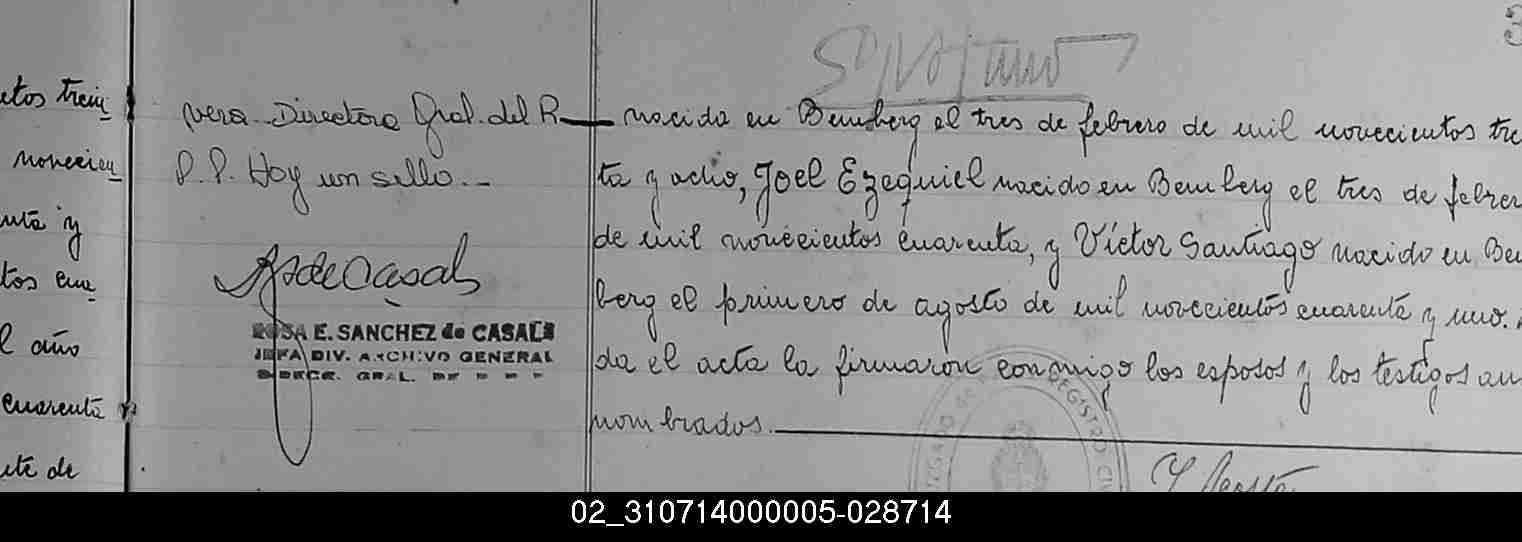 etos trein
novecien
nta y
tos cua
l año
cuarenta y
ete de
vera. Directora Gral. del R
P. P. Hay un sello.-
RsdeCasals
ROSA E. SANCHEZ de CASALS
JEFA DIV. ARCHIVO GENERAL
DIRECC. GRAL. DE
3
nacida en Bemberg el tres de febrero de mil novecientos tre
ta y ocho, Joel Ezequiel nacido en Bemberg el tres de febrer
de mil novecientos cuarenta, y Víctor Santiago nacido en Be
berg el primero de agosto de mil novecientos cuarenta y uno.
da el acta la firmaron conmigo los esposos y los testigos an
nombrados.
REGISTRO CIV
02_310714000005-028714